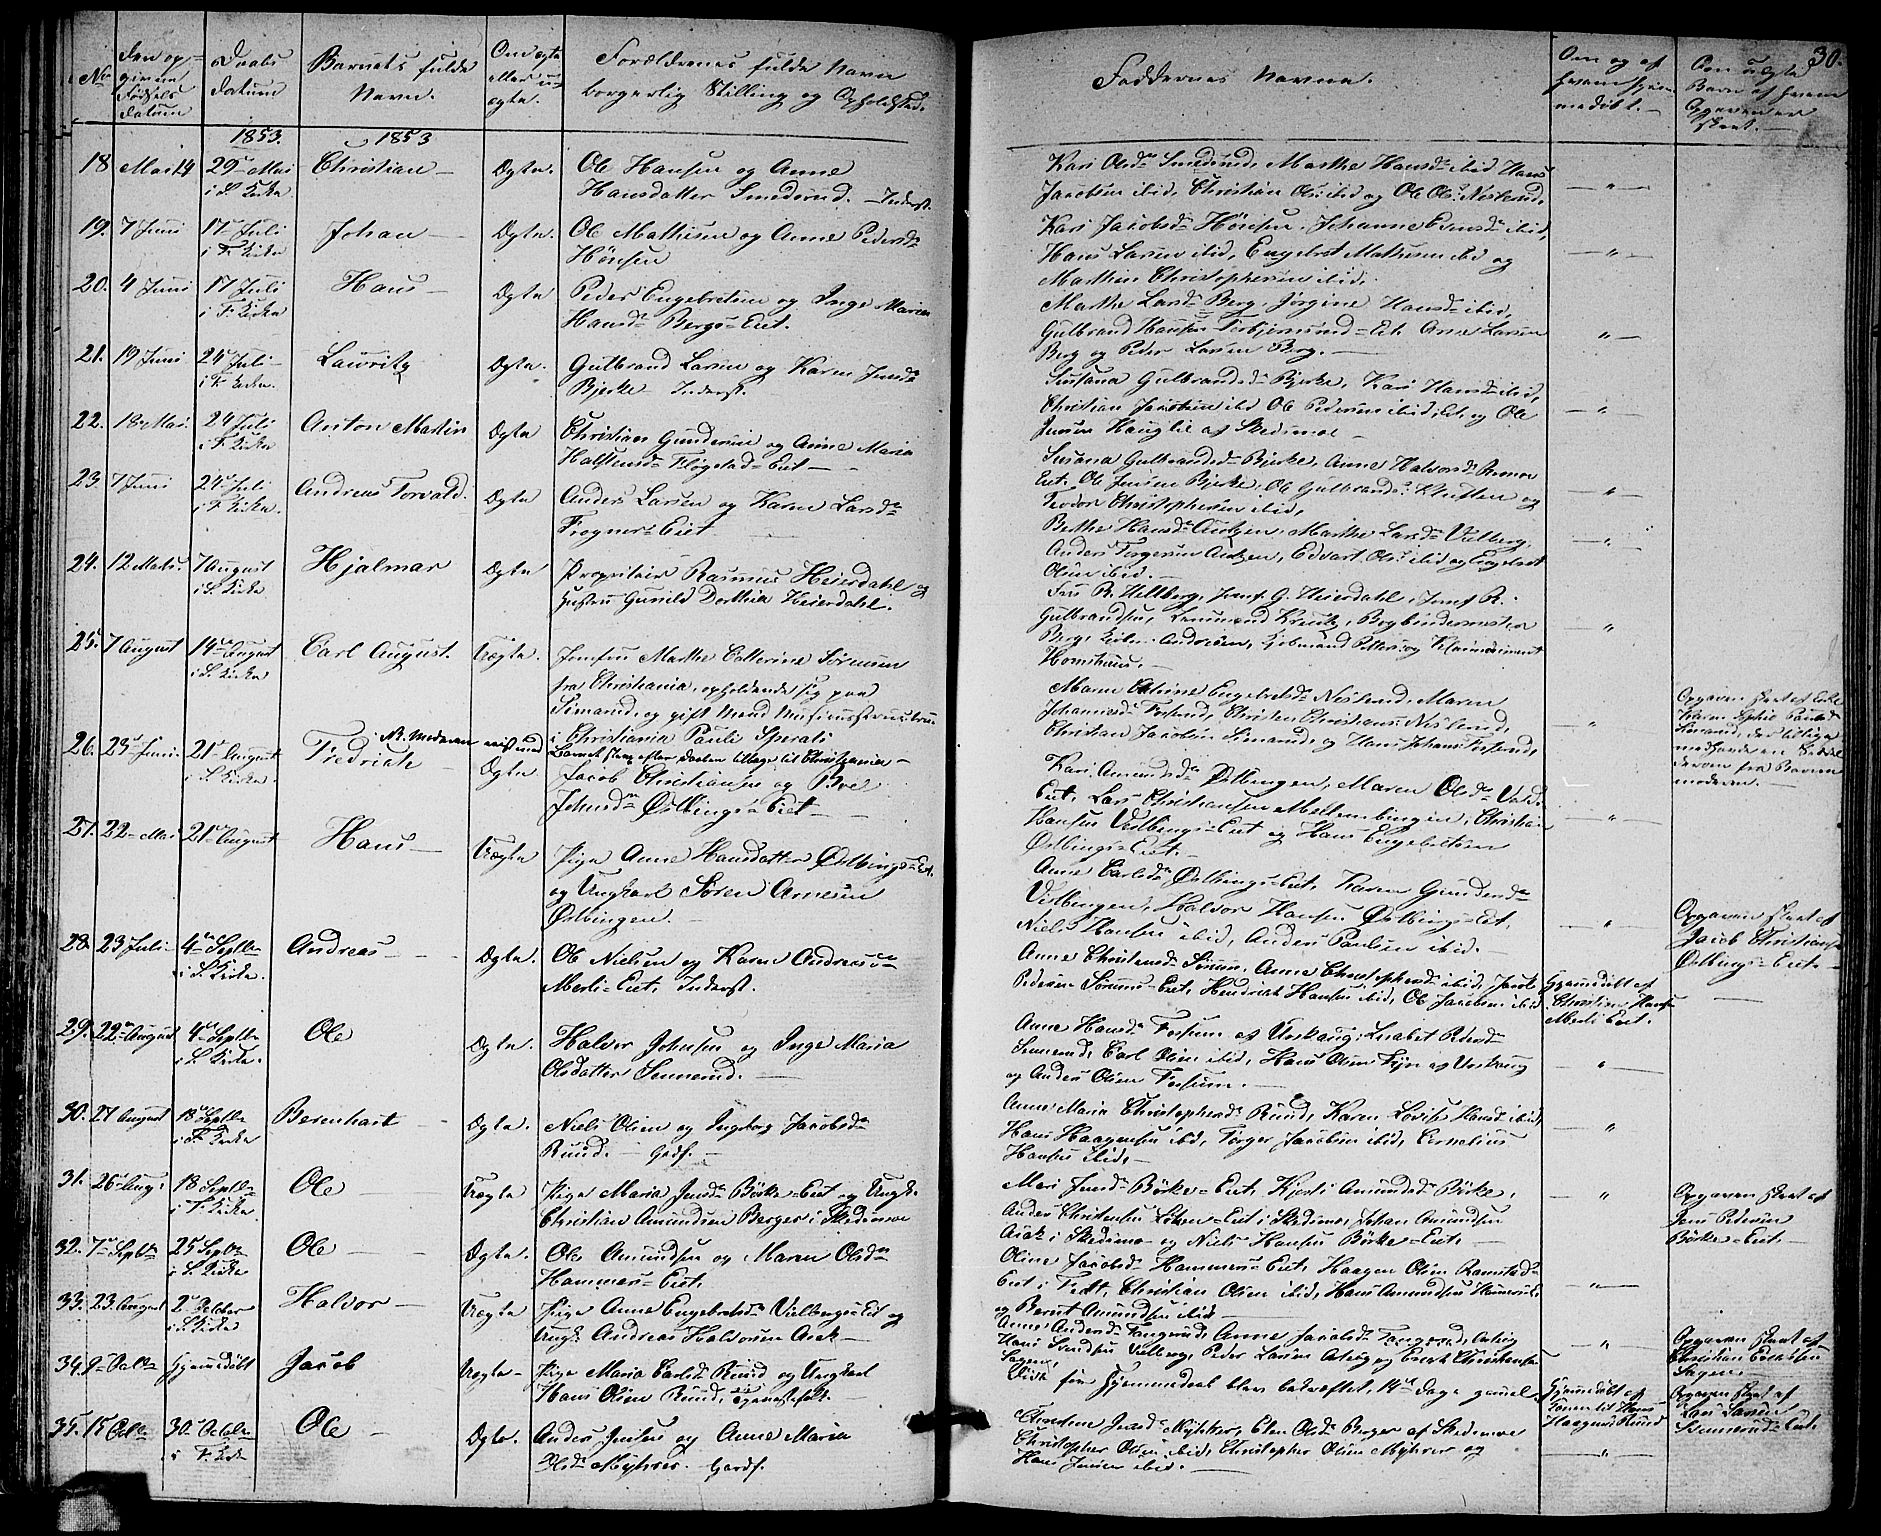 30.
No
Den op-
givne
Fødsels
datum
Daabs
datum
Barnets fulde
Navn.
Om ægte
eller u-
ægte.
Forældrenes fulde Navn
borgerlig Stilling og Opholdsted.
Faddernes Navne.
Om og af
hvem hjem
medøbt.
Om uægte
Barn af hvem
Opgaven er
skeet.
1853. 1853
18 Mai 14 29 Mai i S. Kirke Christian Ægte. Ole Hansen og Anne
Hansdatter Smedsrud. Inderst.
Kari Olsd. Smedsrud, Marthe Hansd. ibid Hans
Jacobsen ibid, Christian Ols. ibid og Ole Ols. Nislund.
19. 7 Juni 17 Juli i F. Kirke Johan Ægte. Ole Mathisen og Anne Pedersd.
Hønsen
Kari Jacobsd. Hønsen, Johanne Evensd. ibid,
Hans Larsen ibid, Engebret Mathisen ibid og
Mathias Christophersen ibid.
20. 4 Juni 17 Juli i F. Kirke Hans Ægte Peder Engebretsen og Inge Maria
Hansd. Bergs-Eiet.
Marthe Larsd. Berg, Jørgine Hansd. ibid,
Gulbrand Hansen Torbjørnsrud-Eie Arne Larsen
Berg og Peder Larsen Berg.
21. 19 Juni 24 Juli i F. Kirke Lauritz Ægte. Gulbrand Larsen og Karen Jensd.
Bjerke Inderst.
Susana Gulbrandsd. Bjerke, Kari Hansd. ibid,
Christian Jacobsen ibid Ole Pedersen ibid, og Ole
Jensen Hauglie af Skedsmoe
22. 18 Mai. 24 Juli i F. Kirke Anton Martin Ægte Christian Gundersen og Anne Maria
Halstensd. Fløgstad-Eiet
Susana Gulbrandsd. Bjerke, Anne Halvorsd.
Eiet. Ole Jensen Bjerke, Ole Gulbrands. Kluften og
Teodor Christophersen ibid,
23. 7 Juni 24 Juli i F. Kirke Andreas Torvald. Ægte Anders Larsen og Karen Larsd.
Frogner-Eiet
Berthe Hansd., Marthe Larsd. Vilberg,
Anders Torgersen, Edvart Ols. ibid og Engebret
Olsen ibid.
24. 12 Marts. 7 August i S. Kirke Hjalmar Ægte Proprietair Rasmus Heierdahl og
Hustru Gunild Dorthea Heierdahl.
Fru B. Hellberg, Jomf. G. Heierdahl, Jomf. R.
Gulbrandsen, Bogbindermester
Berg, Andersen, Kjøbmand Petters. og
Homshuus.
25. 7 August 14 August i S. Kirke Carl August. Uægte. Jomfru Marthe Catherine Sørensen
fra Christiania, opholdende sig paa
Simarud, og gift Mand
i Christiania Pauli Sperati
NB. Moderen reist med Barnet strax efter Daaben tilbage til Christiania
Maren Cathrine Engebretsd. Nislund, Maren
Johannesd. Fossund, Christen Christians. Nislund,
Christian Jacobsen Simarud, og Hans Johans. Fossund,
Opgaven skeet af Enke
Karen Sophie
Simarud, der tillige
medførte en Seddel
derom fra Barnets
moderen.
26. 23 Juni 21 August i S. Kirke Fredrich Ægte Jacob Christiansen og
Johnsd. Østbings-Eiet
Kari Amundsd. Østbingen, Maren Olsd.
Eiet, Lars Christiansen Mellembingen, Christian
Hansen Vestbings-Eiet og Hans Engebretsen
Østbings-Eiet.
27. 22 Mai 21 August Hans Uægte Pige Anne Hansdatter Østbings-Eiet.
og Ungkarl Søren Arnesen
Østbingen.
Anne Carlsd. Østbings-Eiet, Karen Gundersd.
Vestbingen, Halvor Hansen Østbings-Eiet,
Niels Hansen ibid, Anders Paulsen ibid.
Opgaven skeet af
Jacob Christians.
Østbings-Eiet.
28. 23 Juli 4 Septbr i S. Kirke Andreas Ægte. Ole Nielsen og Karen Andreasd.
Merli-Eiet, Inderst.
Anne Christensd. Sørum, Anne Christophersd. ibid, Jacob
Pedersen Sørums-Eiet, Hendrich Hansen ibid, Ole Jacobsen ibid
Hjemmedøbt af
Christian Hansen
Merli Eiet.
29. 22 August 4 Septbr i S. Kirke Ole Ægte. Halvor Johnsen og Inge Maria
Olsdatter Sennerud.
Anne Hansd. Fossum af Urskoug, Lisabet Pedersd.
Sennerud, Carl Olsen ibid, Hans Olsen af Urskoug
og Anders Olsen Fossum.
30. 27 August 18 Septbr i F. Kirke Berenhart Ægte. Niels Olsen og Ingeborg Jacobsd.
Ruud. Gaardf.
Anne Maria Christophersd. Ruud, Karen Lovise Hansd. ibid,
Hans Haagensen ibid, Torger Jacobsen ibid, Cornelius
Hansen ibid.
31. 26 Aug. 18 Septbr i F. Kirke Ole Uægte Pige Maria Jensd. Børke-Eiet og Ungk.
Christian Amundsen Berger i Skedsmoe
Mari Jensd. Børke-Eiet, Kjersti Amundsd. Børke,
Anders Christensen Eiet i Skedsmoe, Johan Amundsen
Aaek i Skedsmoe og Niels Hansen Børke-Eiet.
Opgaven skeet af
Jens Pedersen
Børke-Eiet.
32. 7 Septbr 25 Septbr i S. Kirke Ole Ægte. Ole Amundsen og Maren Olsd.
Hammers-Eiet.
Oline Jacobsd. Hammers-Eiet, Haagen Olsen Ramstad-
Eiet i Fedt, Christian Olsen ibid, Hans Amundsen Hammers-E.
og Bernt Amundsen ibid
33. 23 August 2 October i S. Kirke Halvor Uægte Pige Anne Engebretsd. Vilbergs Eiet og
Ungk. Andreas Halvorsen Aaek
Anne Andersd. Tangerud, Anne Jacobsd. Tangerud,
Hans Svendsen Vilberg, Peder Larsen og Erik Christensen
Sagen
Opgaven skeet af
Christian Eriksen
Sagen.
34. 9 Octbr Hjemmedøbt Jacob Uægte Pige Maria Carlsd. Ruud og Ungkarl
Hans Olsen Ruud,
Døde før Hjemmedaab blev bekræftet, 14 Dage gammel
Hjemmedøbt af
Hans
Haagens. Ruud
Opgaven skeet af
Lars Larsen
Eiet.
35. 15 Octbr 30 Octbr i F. Kirke Ole Ægte. Anders Jensen og Anne Maria
Olsd. Myhrer. Gaardf.
Christine Jensd. Myhrer, Elen Olsd. Berger af Skedsmoe
Christopher Olsen ibid, Christopher Olsen Myhrer og
Hans Jensen ibid.